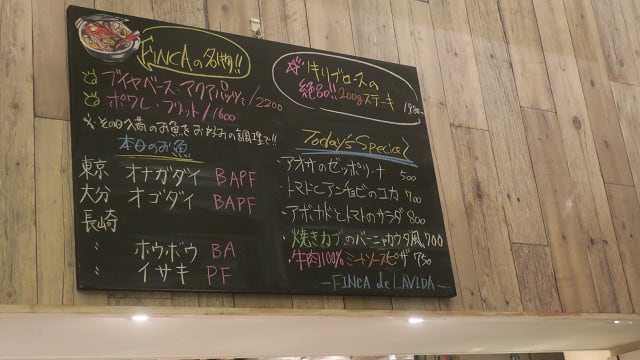 FINCAの名物!!
ブイヤベース・アクアパッツァ/2200
ポワレ・フリット/1600
※その日入荷のお魚をお好みの調理で!!
本日のお魚
東京 オナガダイ BAPF
大分 オゴダイ BAPF
長崎
〃 ホウボウ BA
〃 イサキ PF
キリプロースの
絶品!!200gステーキ 1980-
Today's Special
・アオサのゼッポリーナ 500
・トマトとアンチョビの 700
・アボカドとトマトのサラダ 800
・焼きカブのバーニャカウダ風 700
・牛肉100%ミートソースピザ 750
-FINCA de LAVIDA-